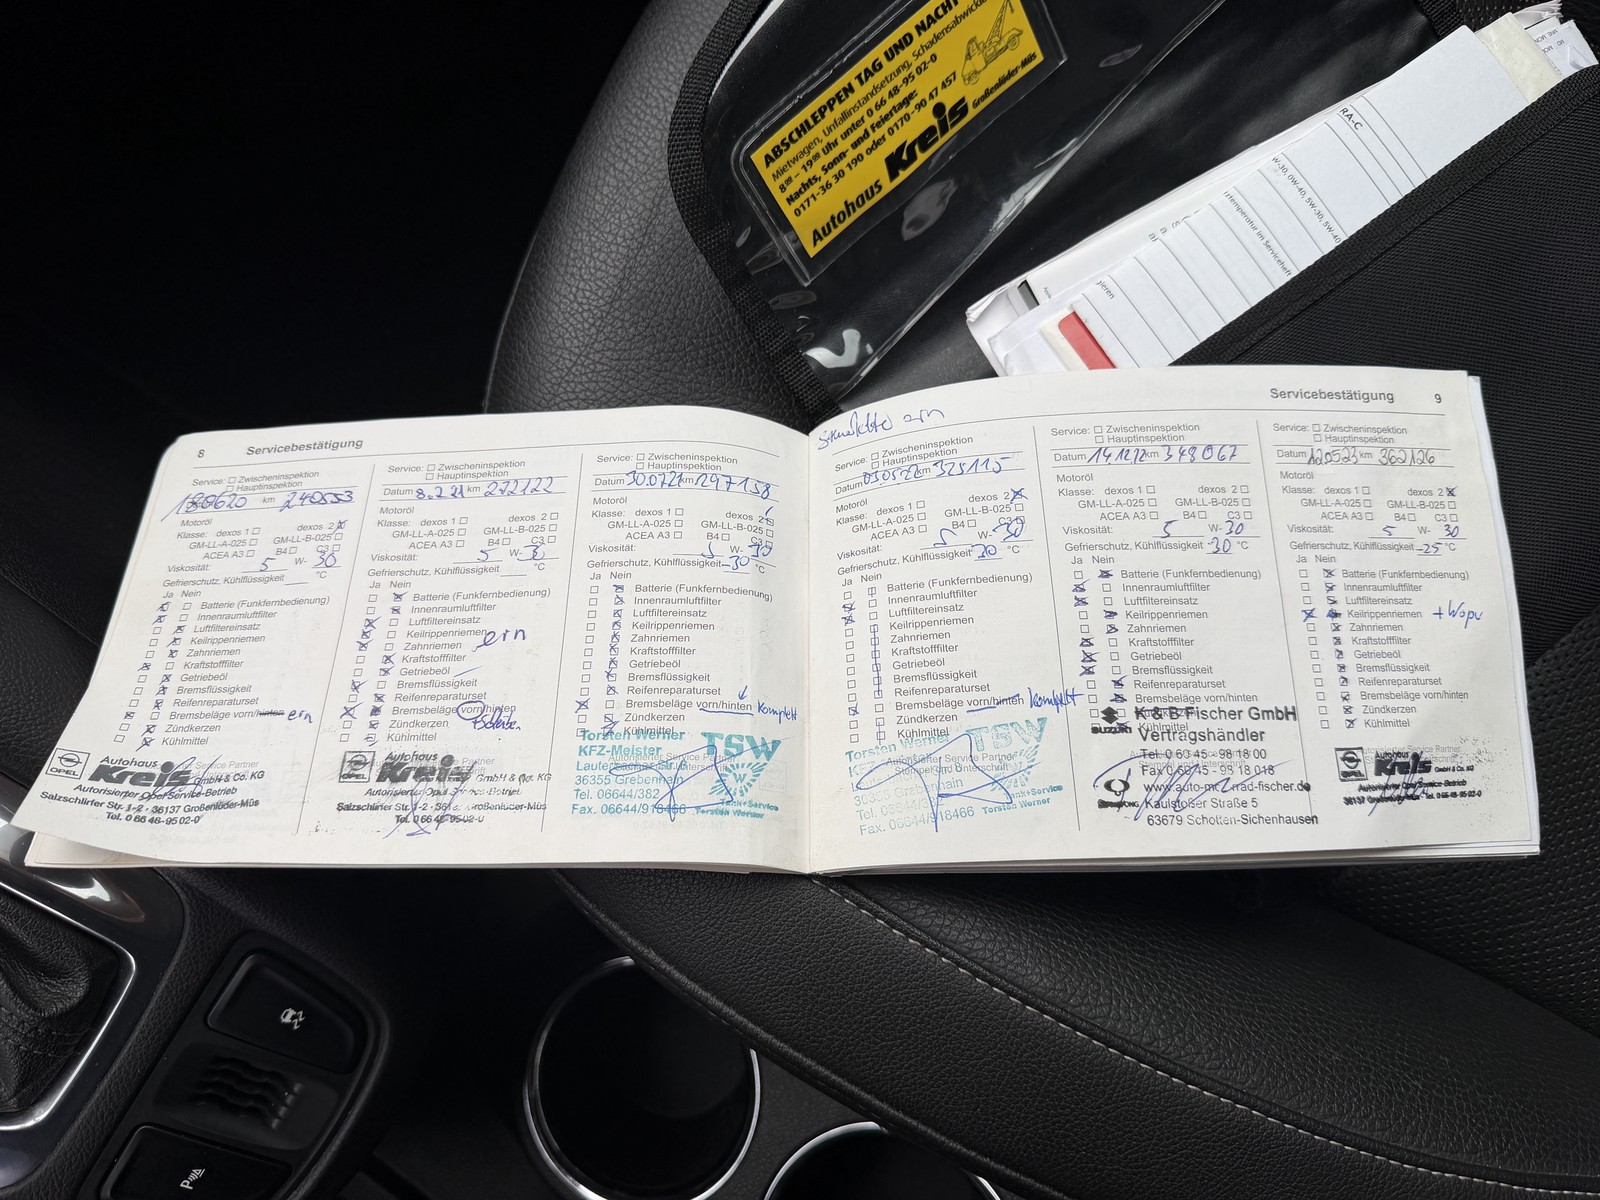 ABSCHLEPPEN TAG UND NACHT
Mietwagen, Unfallinstandsetzung, Schadensabwicklung
8⁰⁰ – 19⁰⁰ Uhr unter 0 66 48-95 02-0
Nachts, Sonn- und Feiertage:
0171-36 30 190 oder 0170-90 47 457
Autohaus Kreis Großenlüder-Müs
RA-C
W-30, 0W-40, 5W-30, 5W-40
temperatur im Serviceheft
ieren
8 Servicebestätigung
Service: Zwischeninspektion
Hauptinspektion
180620 km 240553
Motoröl
Klasse: dexos 1 dexos 2
GM-LL-A-025 GM-LL-B-025
ACEA A3 B4 C3
Viskosität: 5 W- 30
Gefrierschutz, Kühlflüssigkeit °C
Ja Nein
Batterie (Funkfernbedienung)
Innenraumluftfilter
Luftfiltereinsatz
Keilrippenriemen
Zahnriemen
Kraftstofffilter
Getriebeöl
Bremsflüssigkeit
Reifenreparaturset
Bremsbeläge vorn/hinten ern
Zündkerzen
Kühlmittel
OPEL
Autohaus
Kreis GmbH & Co. KG
Autorisierter Opel Service-Betrieb
Salzschlirfer Str. 1-2 · 36137 Großenlüder-Müs
Tel. 0 66 48-95 02-0
Service: Zwischeninspektion
Hauptinspektion
Datum 8.2.21 km 272122
Motoröl
Klasse: dexos 1 dexos 2
GM-LL-A-025 GM-LL-B-025
ACEA A3 B4 C3
Viskosität: 5 W- 30
Gefrierschutz, Kühlflüssigkeit °C
Ja Nein
Batterie (Funkfernbedienung)
Innenraumluftfilter
Luftfiltereinsatz
Keilrippenriemen
Zahnriemen ern
Kraftstofffilter
Getriebeöl
Bremsflüssigkeit
Reifenreparaturset
Bremsbeläge vorn/hinten
Zündkerzen
Kühlmittel
OPEL
Autohaus
Kreis GmbH & Co. KG
Autorisierter Opel Service-Betrieb
Salzschlirfer Str. 1-2 · Großenlüder-Müs
Tel. 0 66 48-95 02-0
Service: Zwischeninspektion
Hauptinspektion
Datum 30.0721 km 297158
Motoröl
Klasse: dexos 1 dexos 2
GM-LL-A-025 GM-LL-B-025
ACEA A3 B4 C3
Viskosität: 5 W- 30
Gefrierschutz, Kühlflüssigkeit -30 °C
Ja Nein
Batterie (Funkfernbedienung)
Innenraumluftfilter
Luftfiltereinsatz
Keilrippenriemen
Zahnriemen
Kraftstofffilter
Getriebeöl
Bremsflüssigkeit
Reifenreparaturset
Bremsbeläge vorn/hinten Komplett
Zündkerzen
Kühlmittel
Torsten Werner
KFZ-Meister
36355 Grebenhain
Tel. 06644/382
Fax. 06644/918466
TSW
Tank+Service
Torsten Werner
Servicebestätigung 9
ern
Service: Zwischeninspektion
Hauptinspektion
Datum 03.05.22 km 325115
Motoröl
Klasse: dexos 1 dexos 2
GM-LL-A-025 GM-LL-B-025
ACEA A3 B4 C3
Viskosität: 5 W- 30
Gefrierschutz, Kühlflüssigkeit 30 °C
Ja Nein
Batterie (Funkfernbedienung)
Innenraumluftfilter
Luftfiltereinsatz
Keilrippenriemen
Zahnriemen
Kraftstofffilter
Getriebeöl
Bremsflüssigkeit
Reifenreparaturset
Bremsbeläge vorn/hinten Komplett
Zündkerzen
Kühlmittel
Torsten Werner
Fax. 06644/918466
TSW
Tank+Service
Torsten Werner
Service: Zwischeninspektion
Hauptinspektion
Datum 14.12.22 km 348067
Motoröl
Klasse: dexos 1 dexos 2
GM-LL-A-025 GM-LL-B-025
ACEA A3 B4 C3
Viskosität: 5 W-30
Gefrierschutz, Kühlflüssigkeit -30 °C
Ja Nein
Batterie (Funkfernbedienung)
Innenraumluftfilter
Luftfiltereinsatz
Keilrippenriemen
Zahnriemen
Kraftstofffilter
Getriebeöl
Bremsflüssigkeit
Reifenreparaturset
Bremsbeläge vorn/hinten
Zündkerzen
Kühlmittel
SUZUKI
K & B Fischer GmbH
Vertragshändler
Tel. 0 60 45 - 98 18 00
Fax 0 60 45 - 98 18 018
www.auto-motorrad-fischer.de
Kaulstoßer Straße 5
63679 Schotten-Sichenhausen
Service: Zwischeninspektion
Hauptinspektion
Datum 120523 km 362126
Motoröl
Klasse: dexos 1 dexos 2
GM-LL-A-025 GM-LL-B-025
ACEA A3 B4 C3
Viskosität: 5 W- 30
Gefrierschutz, Kühlflüssigkeit -25 °C
Ja Nein
Batterie (Funkfernbedienung)
Innenraumluftfilter
Luftfiltereinsatz
Keilrippenriemen + Wapu
Zahnriemen
Kraftstofffilter
Getriebeöl
Bremsflüssigkeit
Reifenreparaturset
Bremsbeläge vorn/hinten
Zündkerzen
Kühlmittel
OPEL
Autohaus
Kreis GmbH & Co. KG
Autorisierter Opel Service-Betrieb
36137 Großenlüder-Müs Tel. 0 66 48-95 02-0
P